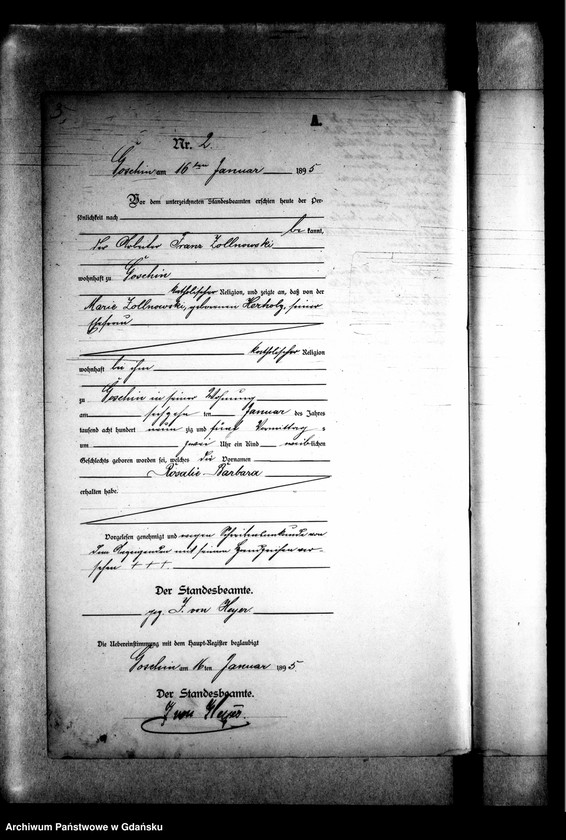 A.
Nr. 2
Goschin am 16ten Januar 1895
Vor dem unterzeichneten Standesbeamten erschien heute der Per-
sönlichkeit nach
bekannt,
der Arbeiter Franz Zollnowski
wohnhaft zu Goschin
katholischer Religion, und zeigte an, daß von der
Marie Zollnowski, geborenen Herholz, seiner
Ehefrau
katholischer Religion
wohnhaft bei ihm
zu Goschin in seiner Wohnung
am sechzehnten Januar des Jahres
tausend acht hundert neunzig und fünf Vormittags
um zwei Uhr ein Kind weiblichen
Geschlechts geboren worden sei, welches die Vornamen
Rosalie Barbara
erhalten habe.
Vorgelesen, genehmigt und wegen Schreibensunkunde von
dem Anzeigenden mit seinem Handzeichen ver-
sehen + + +
Der Standesbeamte.
gez. J. von Heyer
Die Uebereinstimmung mit dem Haupt-Register beglaubigt
Goschin am 16ten Januar 1895.
Der Standesbeamte.
J von Heyer.
Archiwum Państwowe w Gdańsku